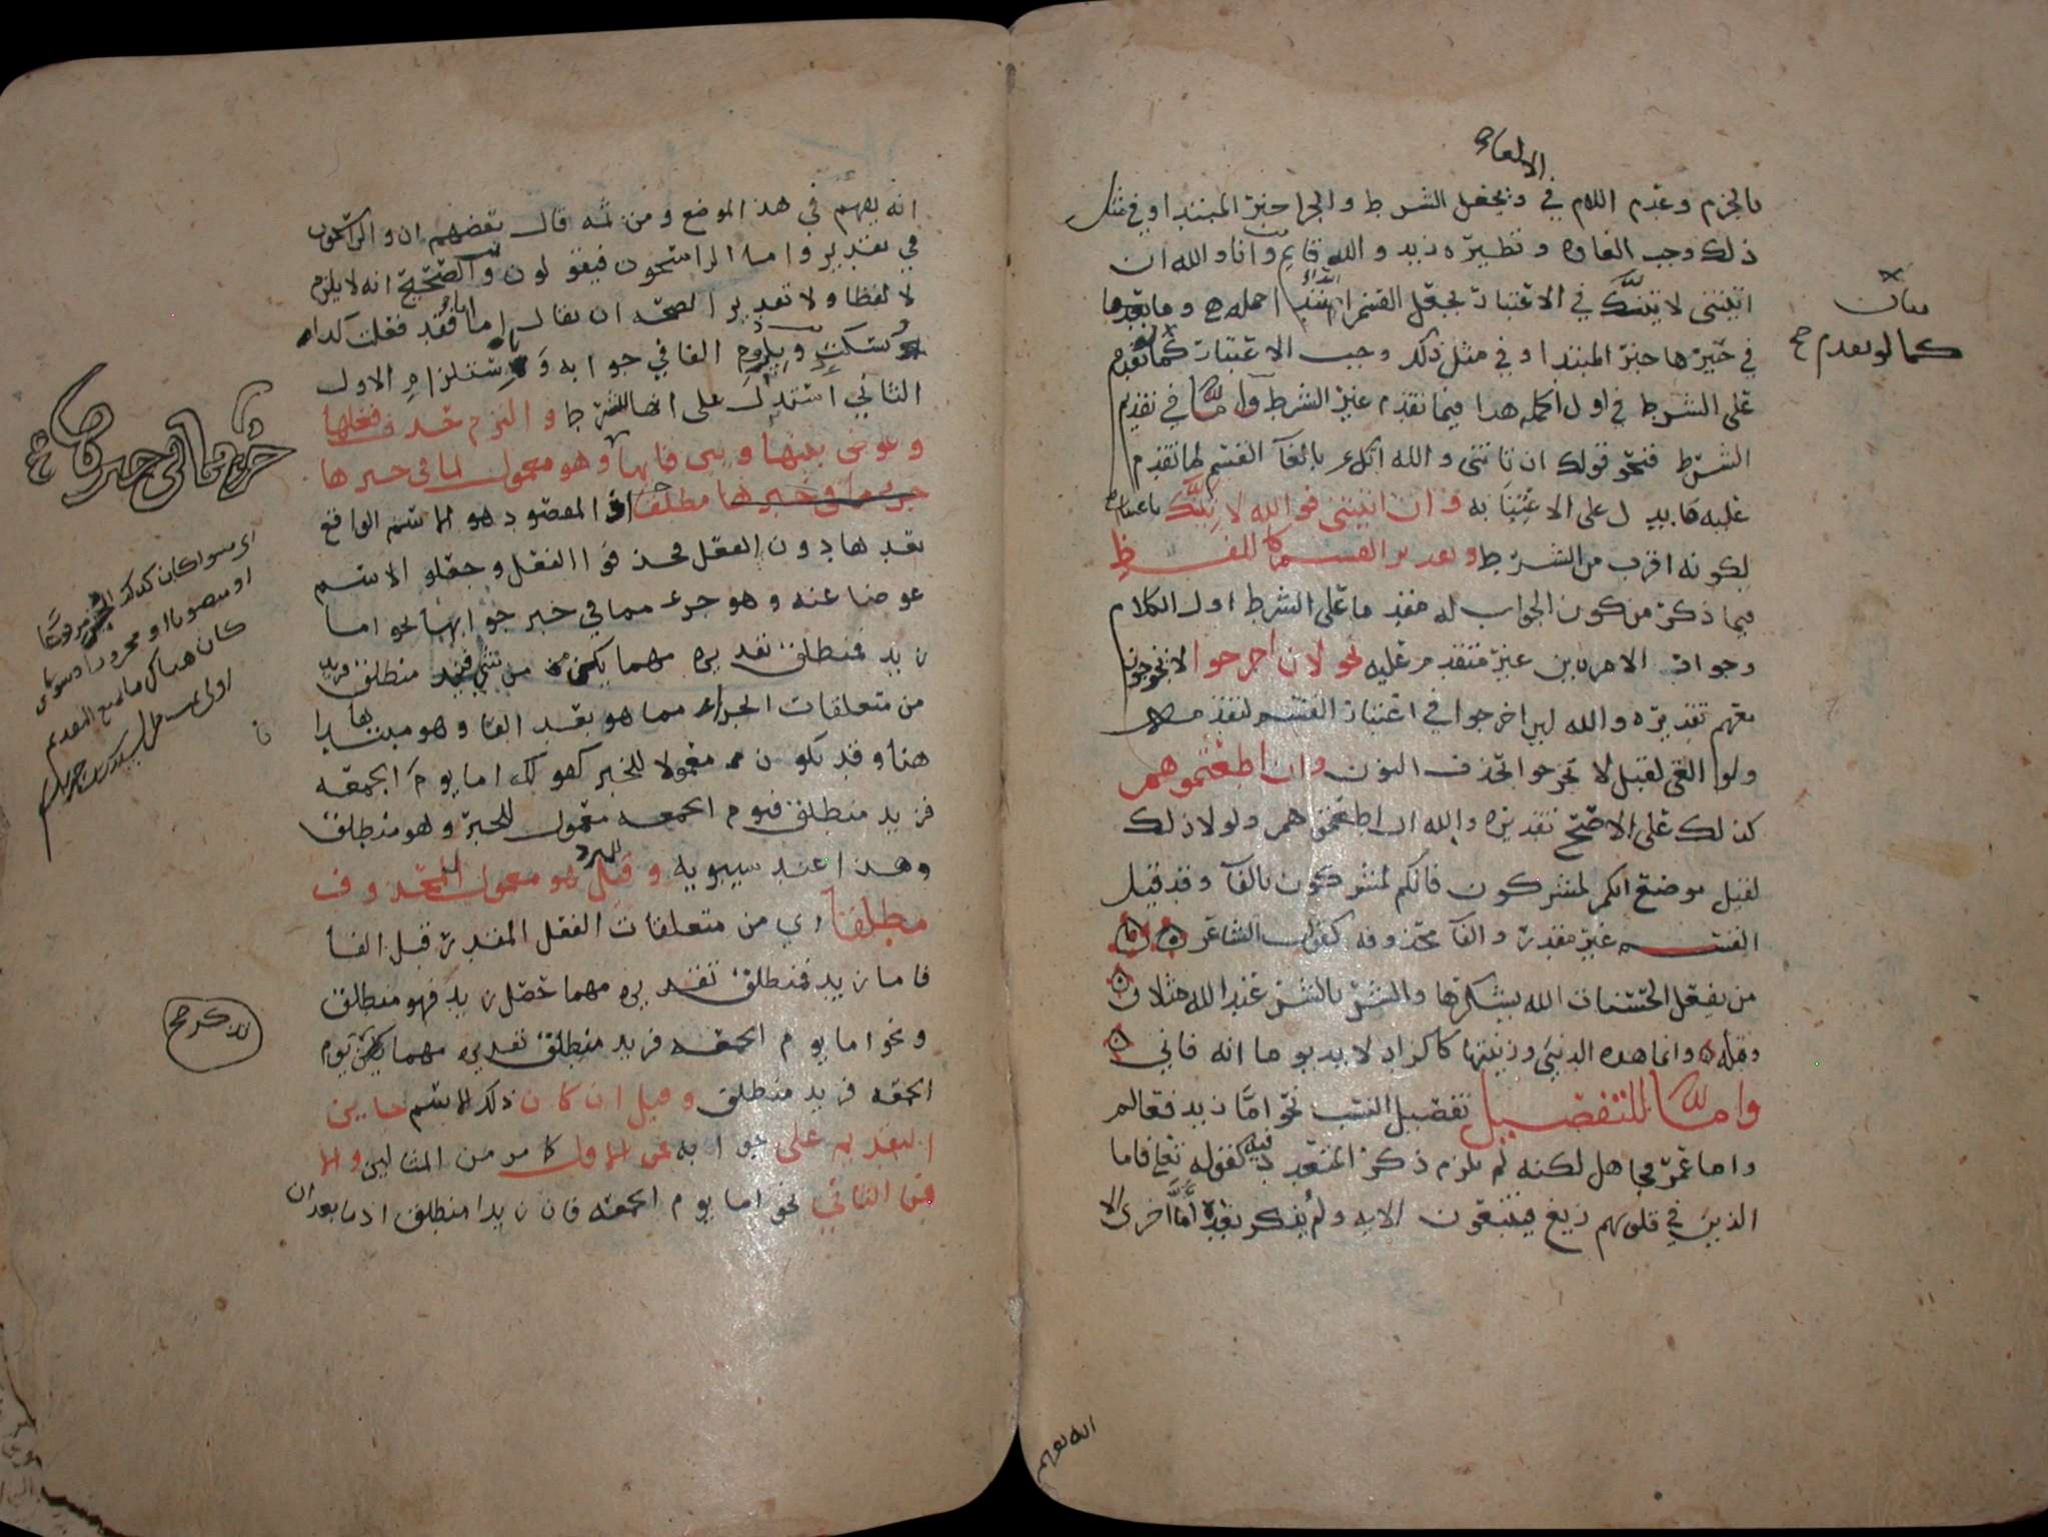 الالغاء
بالجزم وعدم اللام في ويجعل الشرط والجزا خبر المبتدا وفي مثل
ذلك وجب الغاوه ونظيره زيد والله قايم وانا والله ان
اتيتني لاتينك في الاعتبار بجعل القسم الجمله وما بعدها
في خبرها خبر المبتدا وفي مثل ذلك وجب الاعتبار كما تقدم
على الشرط في اول الكلام هذا فيما تقدم غير الشرط واما في تقديم
الشرط فنحو قولك ان تاتني والله اتك بالغآ القسم لما تقدم
عليه ما يدل على الاعتنا به وان اتيتني فوالله لاتينك باعتباره
لكونه اقرب من الشرط وتقدير القسم كاللفظ
فيما ذكر من كون الجواب له مقدما على الشرط اول الكلام
وجواز الامرين غير متقدم عليه نحو لان اخرجوا لا يخرجون
معهم تقديره والله لين اخرجوا في اعتبار القسم لتقدمه
ولو الغي لقيل لا يخرجوا بحذف النون وان اطعتموهم
كذلك على الاصح تقديره والله ان اطعتموهم ولولا ذلك
لقيل موضع انكم لمشركون فانكم لمشركون بالفآ وقد قيل
القسم غير مقدر والفآ محذوفه كقول الشاعر
من يفعل الحسنات الله يشكرها والشر بالشر عند الله مثلان
وقوله وانما هذه الدنيى وزينتها كالزاد لا بد يوما انه فاني
وامّا للتفصيل تفصيل النسب نحو امّا زيد فعالم
واما عمر فجاهل لكنه لم يلزم ذكر المتعدد فيه كقوله تعلى فاما
الذين في قلوبهم زيغ فيتبعون الايه ولم يذكر بعده امّا اخرى الا
انه يفهم
بيان
كما لو تقدم صح
انه يفهم في هذا الموضع ومن ثمه قال بعضهم ان والراسخون
في تقدير واما الراسخون فيقولون والصحيح انه لا يلزم
لا لفظا ولا تقديرا لصحه ان يقال اما انا فقد فعلت كذا
وتسكت ويلزوم الفا في جوابه واستلزام الاول
الثاني استدل على انها للشرط والتزم حذف فعلها
وعوض بينها وبين فايها وهو معمول لما في حيزها
جزء مما في حيزها مطلقا اذ المقصود هو الاسم الواقع
بعدها دون الفعل فحذفوا الفعل وجعلو الاسم
عوضا عنه وهو جزء مما في خبر جوابها نحو اما
زيد فمنطلق تقديره مهما يكن من شي فزيد منطلق فزيد
من متعلقات الجزاء مما هو بعد الفا وهو مبتدا
هنا وقد يكون معمولا للخبر كقولك اما يوم الجمعه
فزيد منطلق فيوم الجمعه معمول للخبر وهو منطلق
وهذا عند سيبويه وقيل هو معمول للمحذوف
المبرد
مطلقا اي من متعلقات الفعل المقدر قبل الفا
فاما زيد فمنطلق تقديره مهما حصل زيد فهو منطلق
ونحو اما يوم الجمعه فزيد منطلق تقديره مهما يكن يوم
الجمعه فزيد منطلق وقيل ان كان ذلك الاسم جايز
التقديم على جوابه فمن الاول كما مر من المثالين والا
فمن الثاني نحو اما يوم الجمعه فان زيدا منطلق اذ ما بعد ان
جزء مما في حيز فا
اي سوا كان ذلك الجزء مرفوعا
او منصوبا او مجرورا وسوا
كان هناك ما يمنع التقديم
تذكر صح